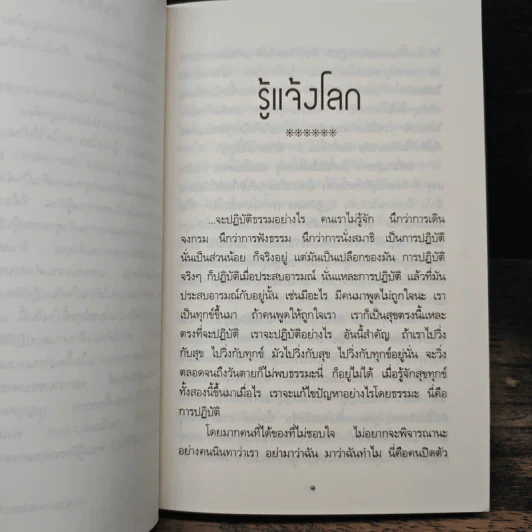 รู้แจ้งโลก
******
...จะปฏิบัติธรรมอย่างไร คนเราไม่รู้จัก นึกว่าการเดิน
จงกรม นึกว่าการฟังธรรม นึกว่าการนั่งสมาธิ เป็นการปฏิบัติ
นั่นเป็นส่วนน้อย ก็จริงอยู่ แต่มันเป็นเปลือกของมัน การปฏิบัติ
จริงๆ ก็ปฏิบัติเมื่อประสบอารมณ์ นั่นแหละการปฏิบัติ แล้วที่มัน
ประสบอารมณ์กับอยู่นั้น เช่นมีอะไร มีคนมาพูดไม่ถูกใจนะ เรา
เป็นทุกข์ขึ้นมา ถ้าคนพูดให้ถูกใจเรา เราก็เป็นสุขตรงนี้แหละ
ตรงที่จะปฏิบัติ เราจะปฏิบัติอย่างไร อันนี้สำคัญ ถ้าเราไปวิ่ง
กับสุข ไปวิ่งกับทุกข์ มัวไปวิ่งกับสุข ไปวิ่งกับทุกข์อยู่นั่น จะวิ่ง
ตลอดจนถึงวันตายก็ไม่พบธรรมะนี่ ก็อยู่ไม่ได้ เมื่อรู้จักสุขทุกข์
ทั้งสองนี้ขึ้นมาเมื่อไร เราจะแก้ไขปัญหาอย่างไรโดยธรรมะ นี่คือ
การปฏิบัติ
โดยมากคนที่ได้ของที่ไม่ชอบใจ ไม่อยากจะพิจารณานะ
อย่างคนนินทาว่าเรา อย่ามาว่าฉัน มาว่าฉันทำไม นี่คือคนปิดตัว